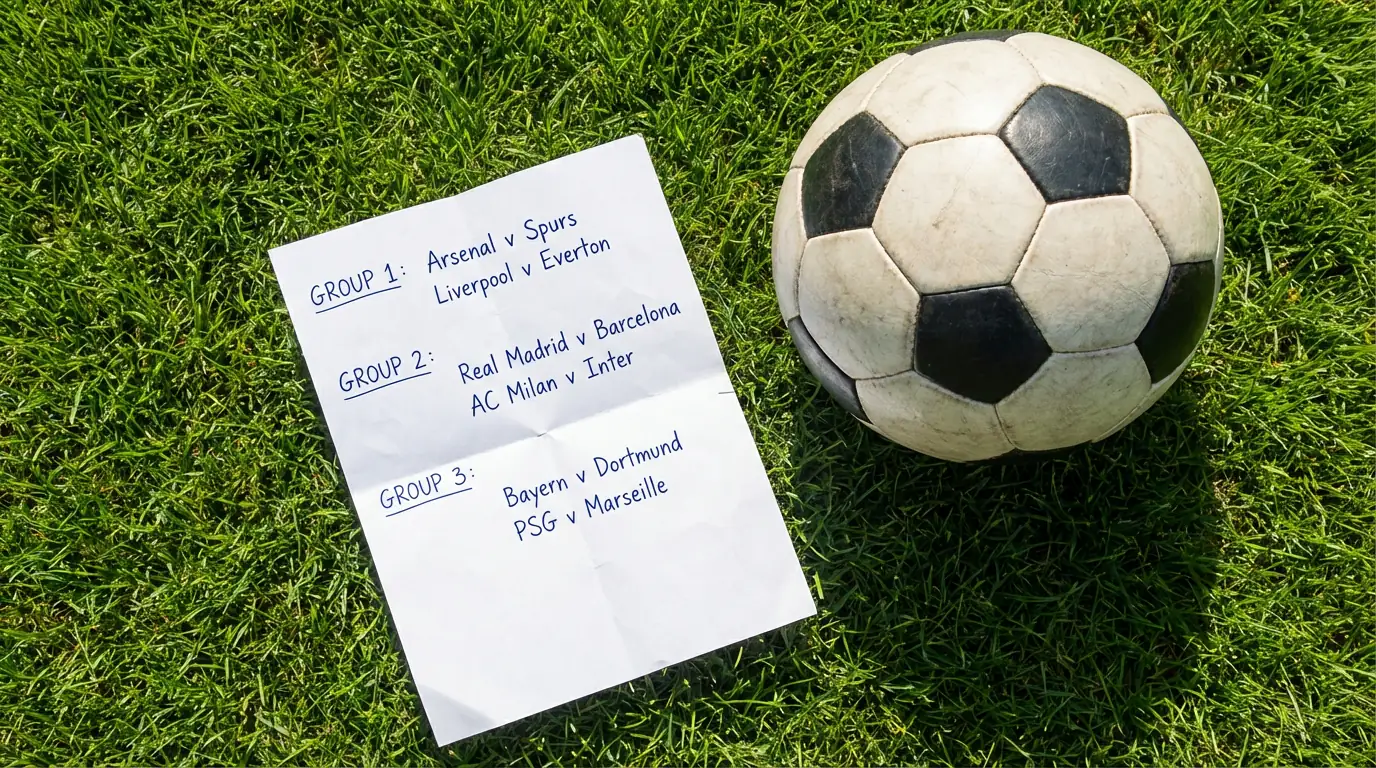 GROUP 1: Arsenal v Spurs
Liverpool v Everton
GROUP 2: Real Madrid v Barcelona
AC Milan v Inter
GROUP 3: Bayern v Dortmund
PSG v Marseille